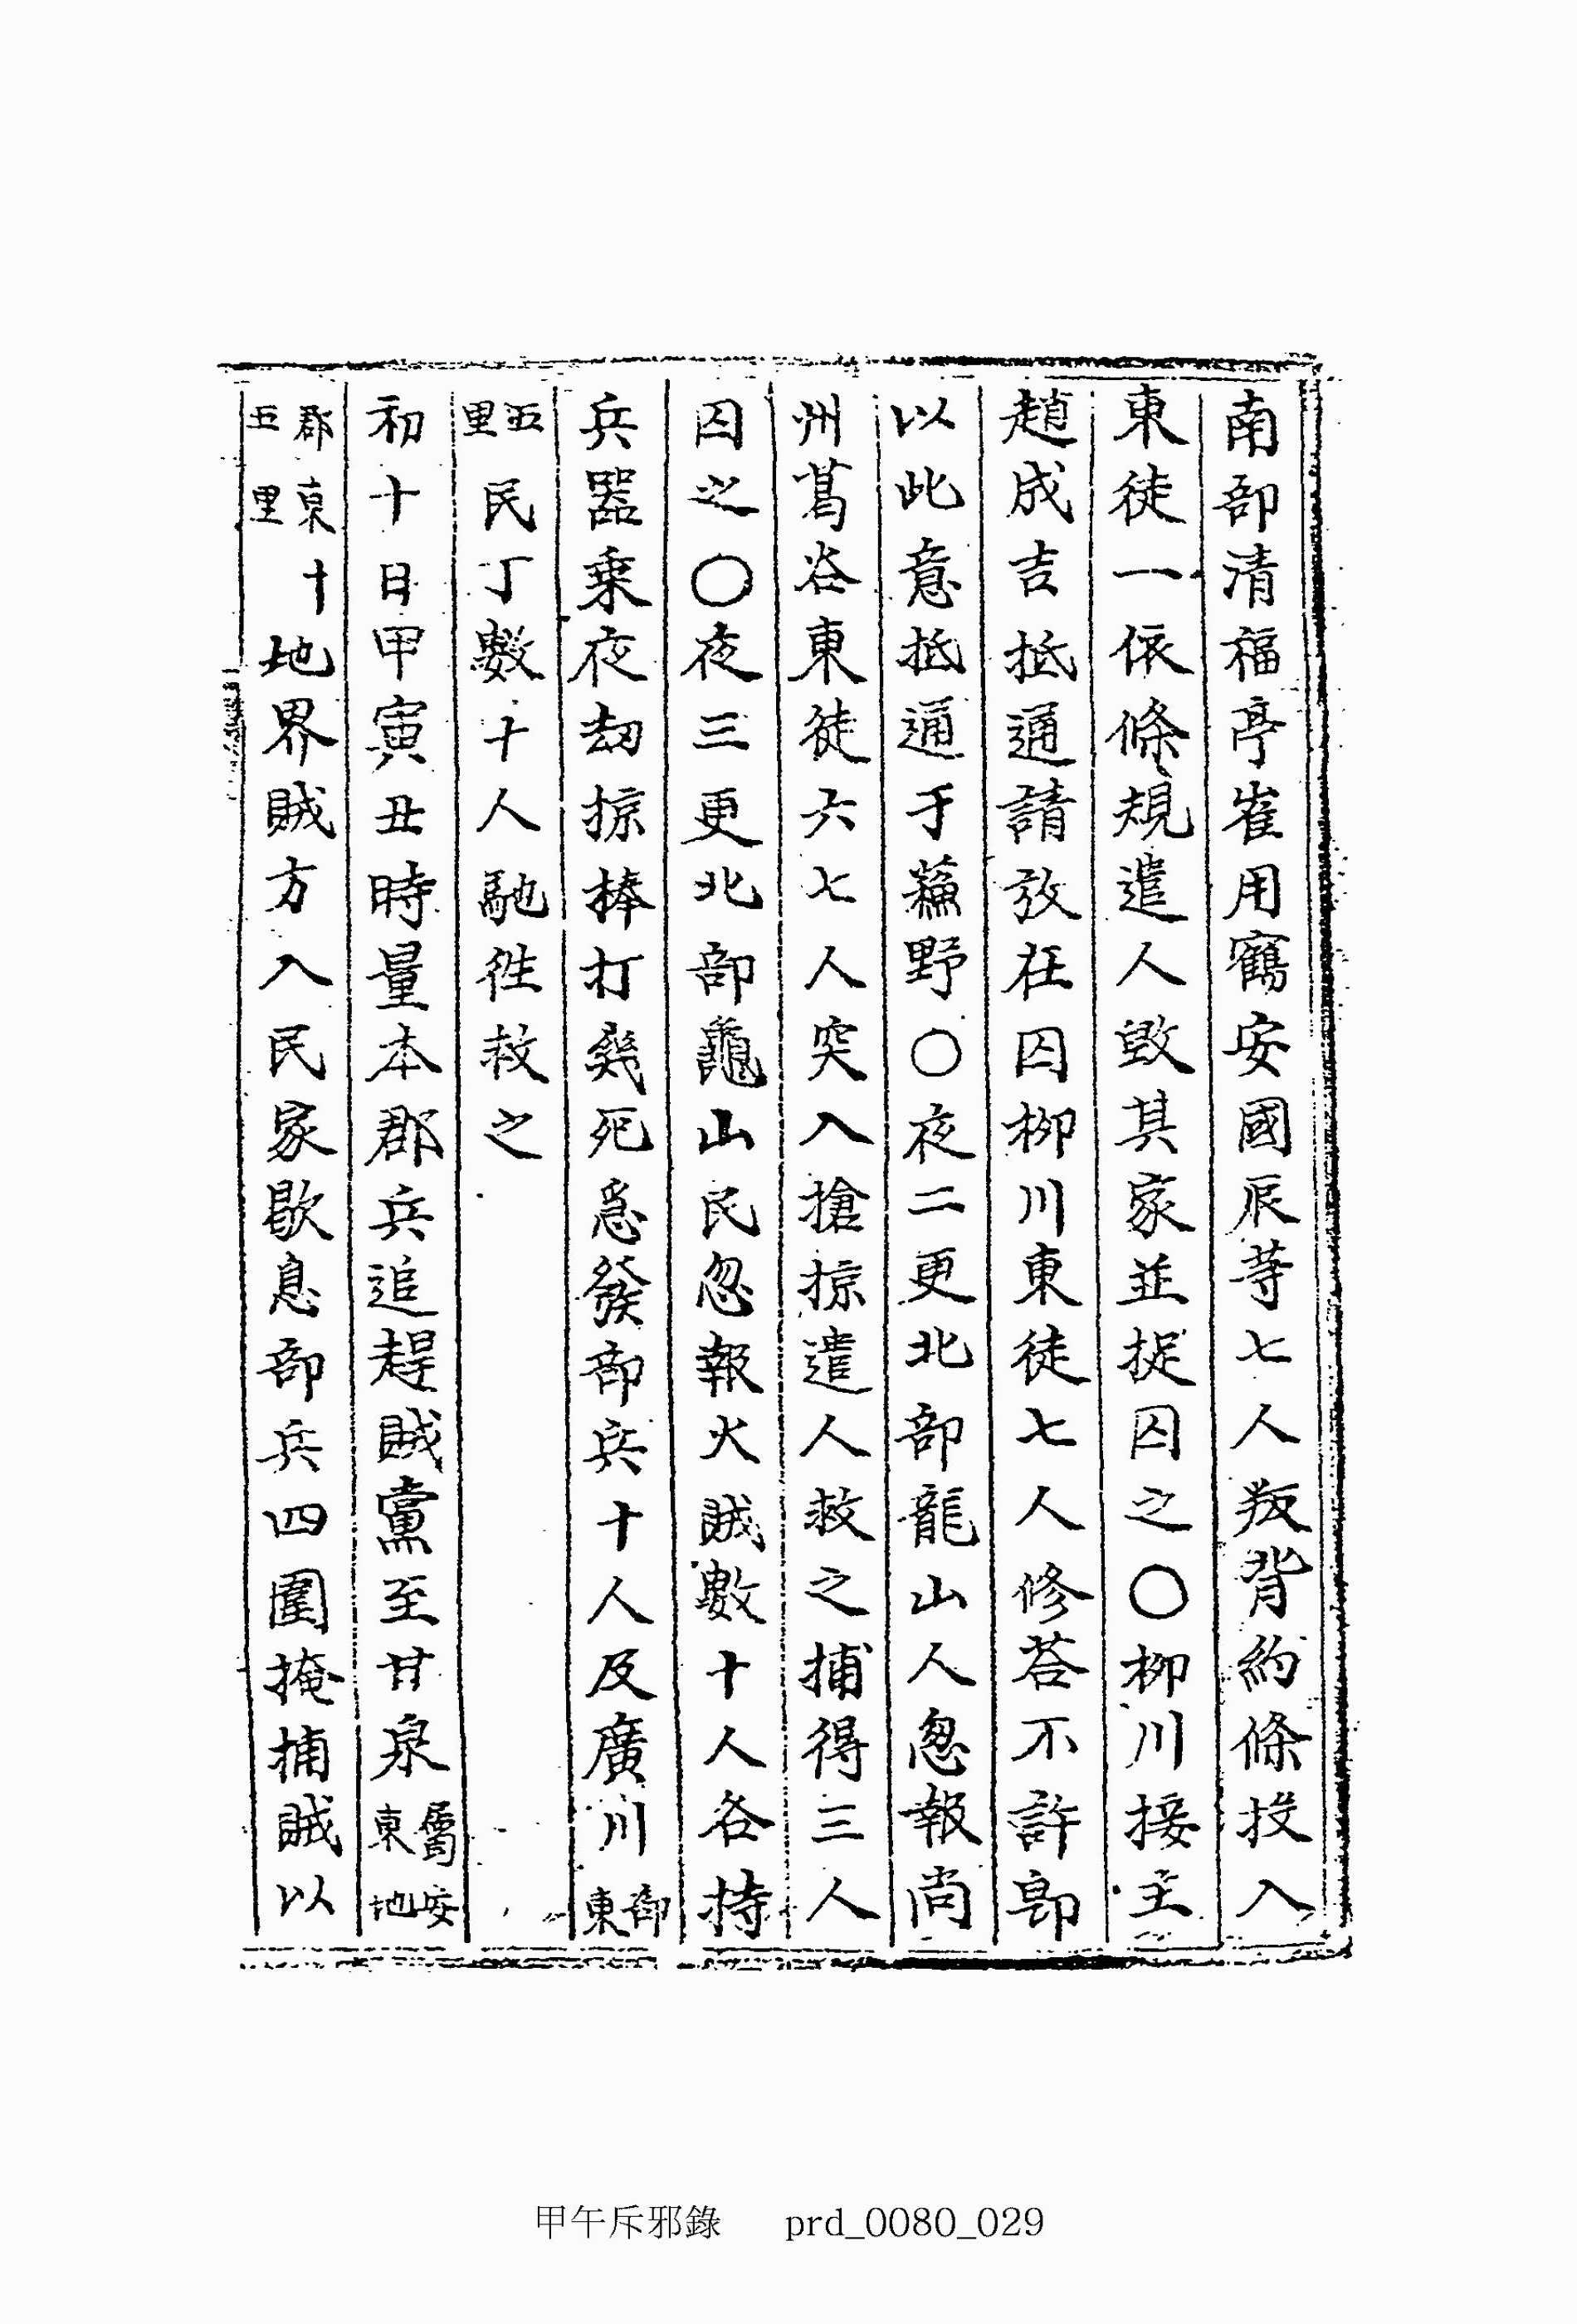 南部清福亭崔用寉鳥安國辰等七人叛背約條投入
東徒一依條規遣人毀其家並捉囚之〇柳川接主
趙成吉抵通請放在囚柳川東徒七人修荅不許卽
以此意抵通于蘓野〇夜二更北部龍山人忽報尚
州葛谷東徒六七人突入搶掠遣人救之捕得三人
囚之〇夜三更北部龜山民忽報火賊數十人各持
兵器乗夜刼掠捧打幾死急發部兵十人及廣川郡東
五里民丁數十人馳徃救之
初十日甲寅丑時量本郡兵追趕賊黨至甘泉屬安東地
郡東十五里地界賊方入民家歇息部兵四圍掩捕賊以
甲午斥邪錄 prd_0080_029